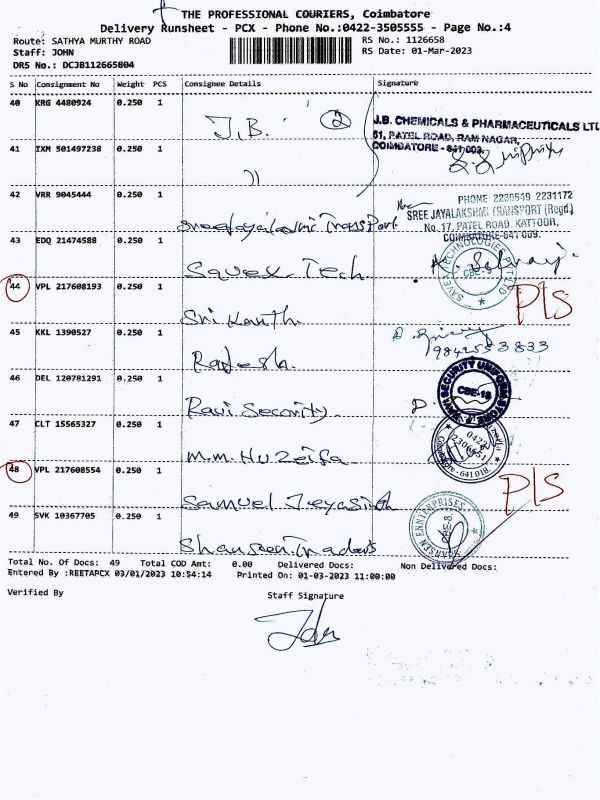 THE PROFESSIONAL COURIERS, Coimbatore
Delivery Runsheet - PCX - Phone No.:0422-3505555 - Page No.:4
Route: SATHYA MURTHY ROAD RS No.: 1126658
Staff: JOHN RS Date: 01-Mar-2023
DRS No.: DCJB112665804
S No Consignment No Weight PCS Consignee Details Signature
40 KRG 4480924 0.250 1 J.B. 2
J.B. CHEMICALS & PHARMACEUTICALS LTD
61, PATEL ROAD, RAM NAGAR,
COIMBATORE - 641 009.
41 IXM 501497238 0.250 1 〃
42 VRR 9045444 0.250 1
PHONE 2230549 2231172
SREE JAYALAKSHMI TRANSPORT (Regd.)
No. 17, PATEL ROAD, KATTOOR,
COIMBATORE-641 009.
43 EDQ 21474588 0.250 1 Savex Tech
CBE-9
44 VPL 217608193 0.250 1 Srikanth PIS
45 KKL 1390527 0.250 1 Rajesh
46 DEL 120781291 0.250 1 Ravi Security
CBE-18
47 CLT 15565327 0.250 1 M.M. Huzeifa
0422
2306451
48 VPL 217608554 0.250 1 Samuel Jeyasingh PIS
49 SVK 10367705 0.250 1
ENTERPRISES
Total No. Of Docs: 49 Total COD Amt: 0.00 Delivered Docs: Non Delivered Docs:
Entered By :REETAPCX 03/01/2023 10:54:14 Printed On: 01-03-2023 11:00:00
Verified By Staff Signature